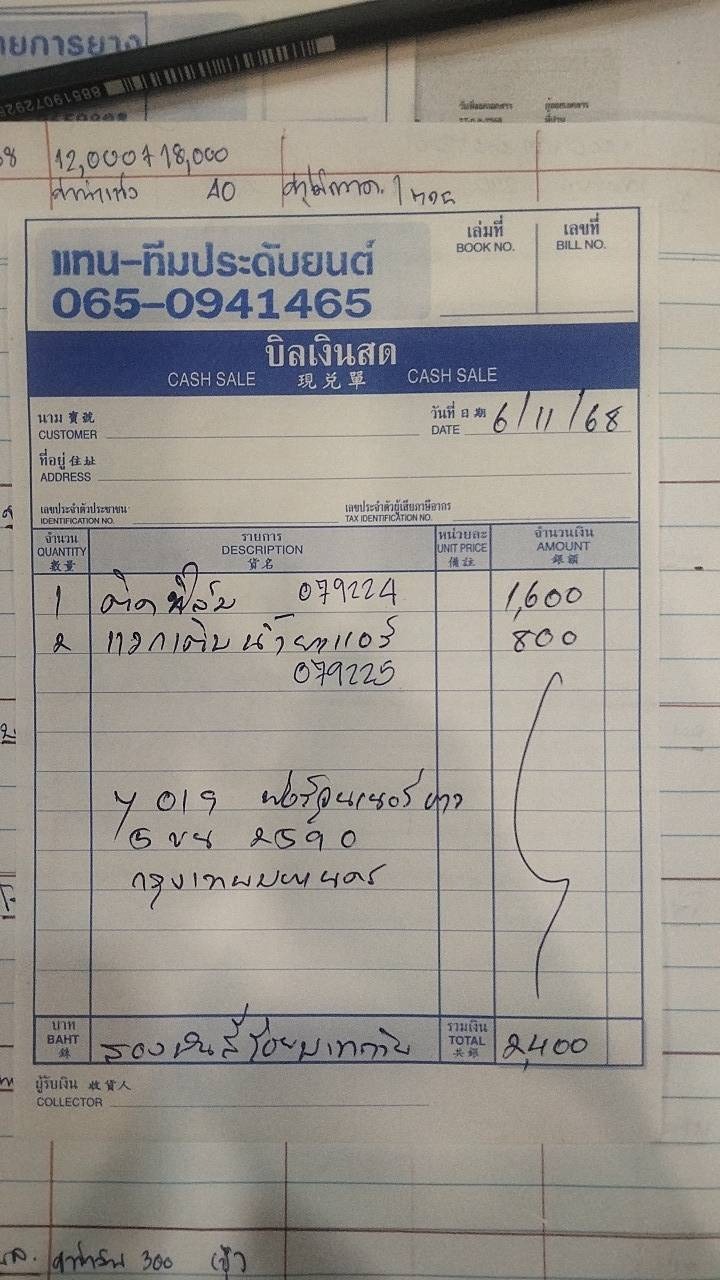 ายการยาง
8851907292
วันที่ออกเอกสาร ผู้ออกเอกสาร
68 12,000+18,000
40
แทน-ทีมประดับยนต์
065-0941465
เล่มที่ เลขที่
BOOK NO. BILL NO.
บิลเงินสด
CASH SALE 現兌單 CASH SALE
นาม 寶號 วันที่ 日期
CUSTOMER DATE 6/11/68
ที่อยู่ 住址
ADDRESS
เลขประจำตัวประชาชน เลขประจำตัวผู้เสียภาษีอากร
IDENTIFICATION NO. TAX IDENTIFICATION NO.
จำนวน รายการ หน่วยละ จำนวนเงิน
QUANTITY DESCRIPTION UNIT PRICE AMOUNT
數量 貨名 備註 銀額
1 ติดฟิล์ม 079224 1,600
2 แวกเติมน้ำยาแอร์ 800
079225
019 ฟอร์จูนเนอร์ ขาว
5 ขน 2590
กรุงเทพมหานคร
บาท รวมเงิน
BAHT สองพันสี่ร้อยบาทถ้วน TOTAL 2,400
銖 共銀
ผู้รับเงิน 收貨人
COLLECTOR
300